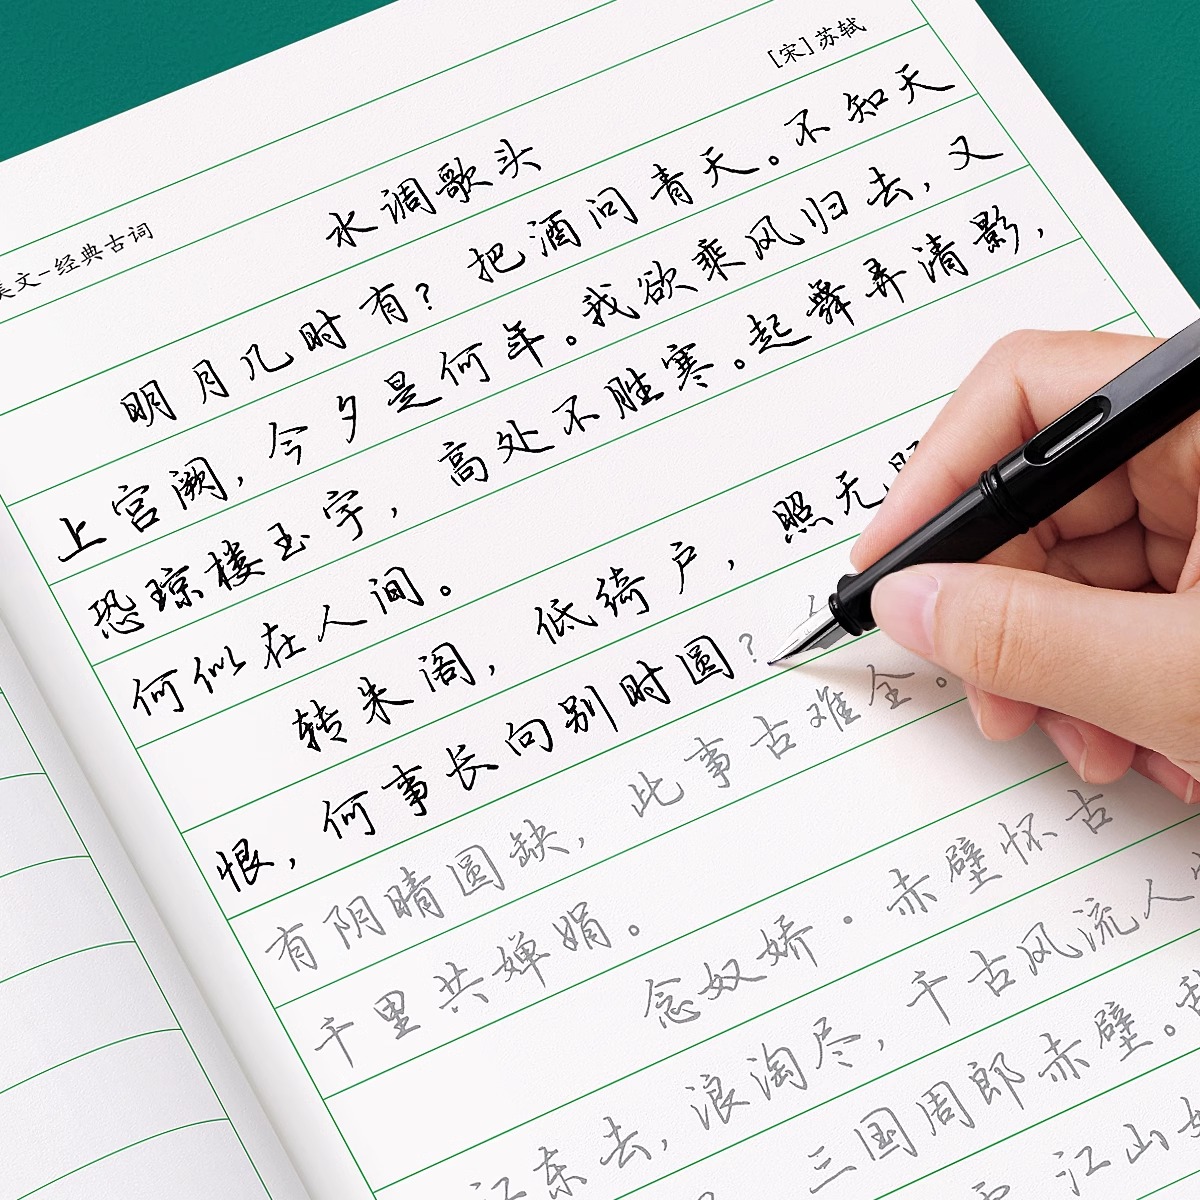 [宋]苏轼
美文-经典古词
水调歌头
明月几时有？把酒问青天。不知天
上宫阙，今夕是何年。我欲乘风归去，又
恐琼楼玉宇，高处不胜寒。起舞弄清影，
何似在人间。
转朱阁，低绮户，照无
恨，何事长向别时圆？
有阴晴圆缺，此事古难全。
千里共婵娟。
念奴娇·赤壁怀古
江东去，浪淘尽，千古风流人
三国周郎赤壁。
江山